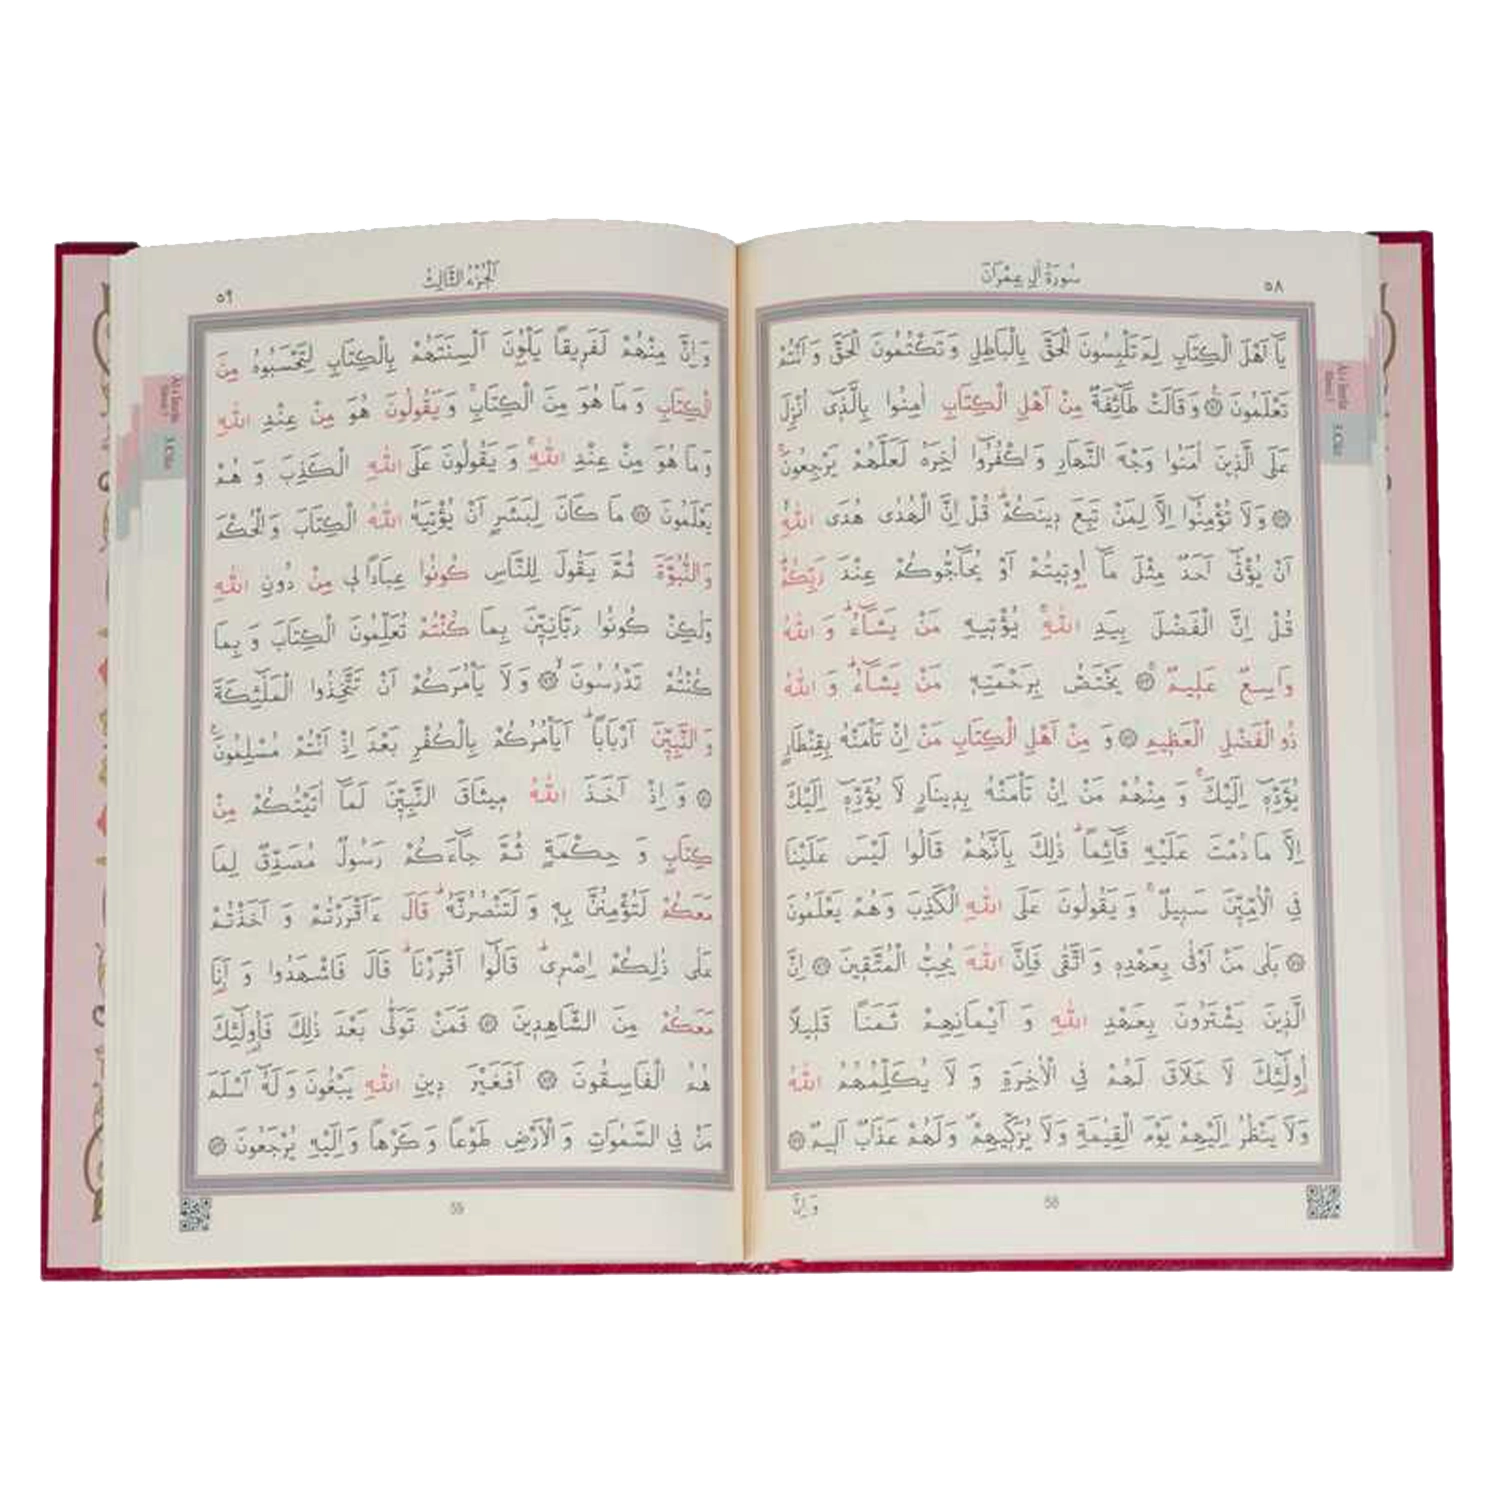 سُورَةُ اٰلِ عِمْرٰانَ
٥٨
يَٓا اَهْلَ الْكِتَابِ لِمَ تَلْبِسُونَ الْحَقَّ بِالْبَاطِلِ وَتَكْتُمُونَ الْحَقَّ وَاَنْتُمْ
تَعْلَمُونَ ۞ وَقَالَتْ طَٓائِفَةٌ مِنْ اَهْلِ الْكِتَابِ اٰمِنُوا بِالَّذ۪ٓى اُنْزِلَ
عَلَى الَّذ۪ينَ اٰمَنُوا وَجْهَ النَّهَارِ وَاكْفُرُٓوا اٰخِرَهُ لَعَلَّهُمْ يَرْجِعُونَۚ
۞ وَلَا تُؤْمِنُٓوا اِلَّا لِمَنْ تَبِعَ د۪ينَكُمْۜ قُلْ اِنَّ الْهُدٰى هُدَى اللّٰهِۙ
اَنْ يُؤْتٰٓى اَحَدٌ مِثْلَ مَٓا اُو۫ت۪يتُمْ اَوْ يُحَٓاجُّوكُمْ عِنْدَ رَبِّكُمْۜ
قُلْ اِنَّ الْفَضْلَ بِيَدِ اللّٰهِۚ يُؤْت۪يهِ مَنْ يَشَٓاءُۜ وَاللّٰهُ
وَاسِعٌ عَل۪يمٌ ۞ يَخْتَصُّ بِرَحْمَتِه۪ مَنْ يَشَٓاءُۜ وَاللّٰهُ
ذُوالْفَضْلِ الْعَظ۪يمِ ۞ وَمِنْ اَهْلِ الْكِتَابِ مَنْ اِنْ تَأْمَنْهُ بِقِنْطَارٍ
يُؤَدِّه۪ٓ اِلَيْكَۚ وَمِنْهُمْ مَنْ اِنْ تَأْمَنْهُ بِد۪ينَارٍ لَا يُؤَدِّه۪ٓ اِلَيْكَ
اِلَّا مَا دُمْتَ عَلَيْهِ قَٓائِمًاۜ ذٰلِكَ بِاَنَّهُمْ قَالُوا لَيْسَ عَلَيْنَا
فِي الْاُمِّيّ۪نَ سَب۪يلٌۚ وَيَقُولُونَ عَلَى اللّٰهِ الْكَذِبَ وَهُمْ يَعْلَمُونَ
۞ بَلٰى مَنْ اَوْفٰى بِعَهْدِه۪ وَاتَّقٰى فَاِنَّ اللّٰهَ يُحِبُّ الْمُتَّق۪ينَ ۞ اِنَّ
الَّذ۪ينَ يَشْتَرُونَ بِعَهْدِ اللّٰهِ وَاَيْمَانِهِمْ ثَمَنًا قَل۪يلًا
اُو۬لٰٓئِكَ لَا خَلَاقَ لَهُمْ فِي الْاٰخِرَةِ وَلَا يُكَلِّمُهُمُ اللّٰهُ
وَلَا يَنْظُرُ اِلَيْهِمْ يَوْمَ الْقِيٰمَةِ وَلَا يُزَكّ۪يهِمْ وَلَهُمْ عَذَابٌ اَل۪يمٌ ۞
وَاِنَّ
58
اَلْجُزْءُ الثَّالِثُ
٥٩
وَاِنَّ مِنْهُمْ لَفَر۪يقًا يَلْوُ۫نَ اَلْسِنَتَهُمْ بِالْكِتَابِ لِتَحْسَبُوهُ مِنَ
الْكِتَابِ وَمَا هُوَ مِنَ الْكِتَابِۚ وَيَقُولُونَ هُوَ مِنْ عِنْدِ اللّٰهِ
وَمَا هُوَ مِنْ عِنْدِ اللّٰهِۚ وَيَقُولُونَ عَلَى اللّٰهِ الْكَذِبَ وَهُمْ
يَعْلَمُونَ ۞ مَا كَانَ لِبَشَرٍ اَنْ يُؤْتِيَهُ اللّٰهُ الْكِتَابَ وَالْحُكْمَ
وَالنُّبُوَّةَ ثُمَّ يَقُولَ لِلنَّاسِ كُونُوا عِبَادًا ل۪ي مِنْ دُونِ اللّٰهِ
وَلٰكِنْ كُونُوا رَبَّانِيّ۪نَ بِمَا كُنْتُمْ تُعَلِّمُونَ الْكِتَابَ وَبِمَا
كُنْتُمْ تَدْرُسُونَۙ ۞ وَلَا يَأْمُرَكُمْ اَنْ تَتَّخِذُوا الْمَلٰٓئِكَةَ
وَالنَّبِيّ۪نَ اَرْبَابًاۜ اَيَأْمُرُكُمْ بِالْكُفْرِ بَعْدَ اِذْ اَنْتُمْ مُسْلِمُونَ۟
۞ وَاِذْ اَخَذَ اللّٰهُ م۪يثَاقَ النَّبِيّ۪نَ لَمَٓا اٰتَيْتُكُمْ مِنْ
كِتَابٍ وَحِكْمَةٍ ثُمَّ جَٓاءَكُمْ رَسُولٌ مُصَدِّقٌ لِمَا
مَعَكُمْ لَتُؤْمِنُنَّ بِه۪ وَلَتَنْصُرُنَّهُۜ قَالَ ءَاَقْرَرْتُمْ وَاَخَذْتُمْ
عَلٰى ذٰلِكُمْ اِصْر۪ىۜ قَالُٓوا اَقْرَرْنَاۜ قَالَ فَاشْهَدُوا وَاَنَا۬
مَعَكُمْ مِنَ الشَّاهِد۪ينَ ۞ فَمَنْ تَوَلّٰى بَعْدَ ذٰلِكَ فَاُو۬لٰٓئِكَ
هُمُ الْفَاسِقُونَ ۞ اَفَغَيْرَ د۪ينِ اللّٰهِ يَبْغُونَ وَلَهُٓ اَسْلَمَ
مَنْ فِي السَّمٰوَاتِ وَالْاَرْضِ طَوْعًا وَكَرْهًا وَاِلَيْهِ يُرْجَعُونَ ۞
59